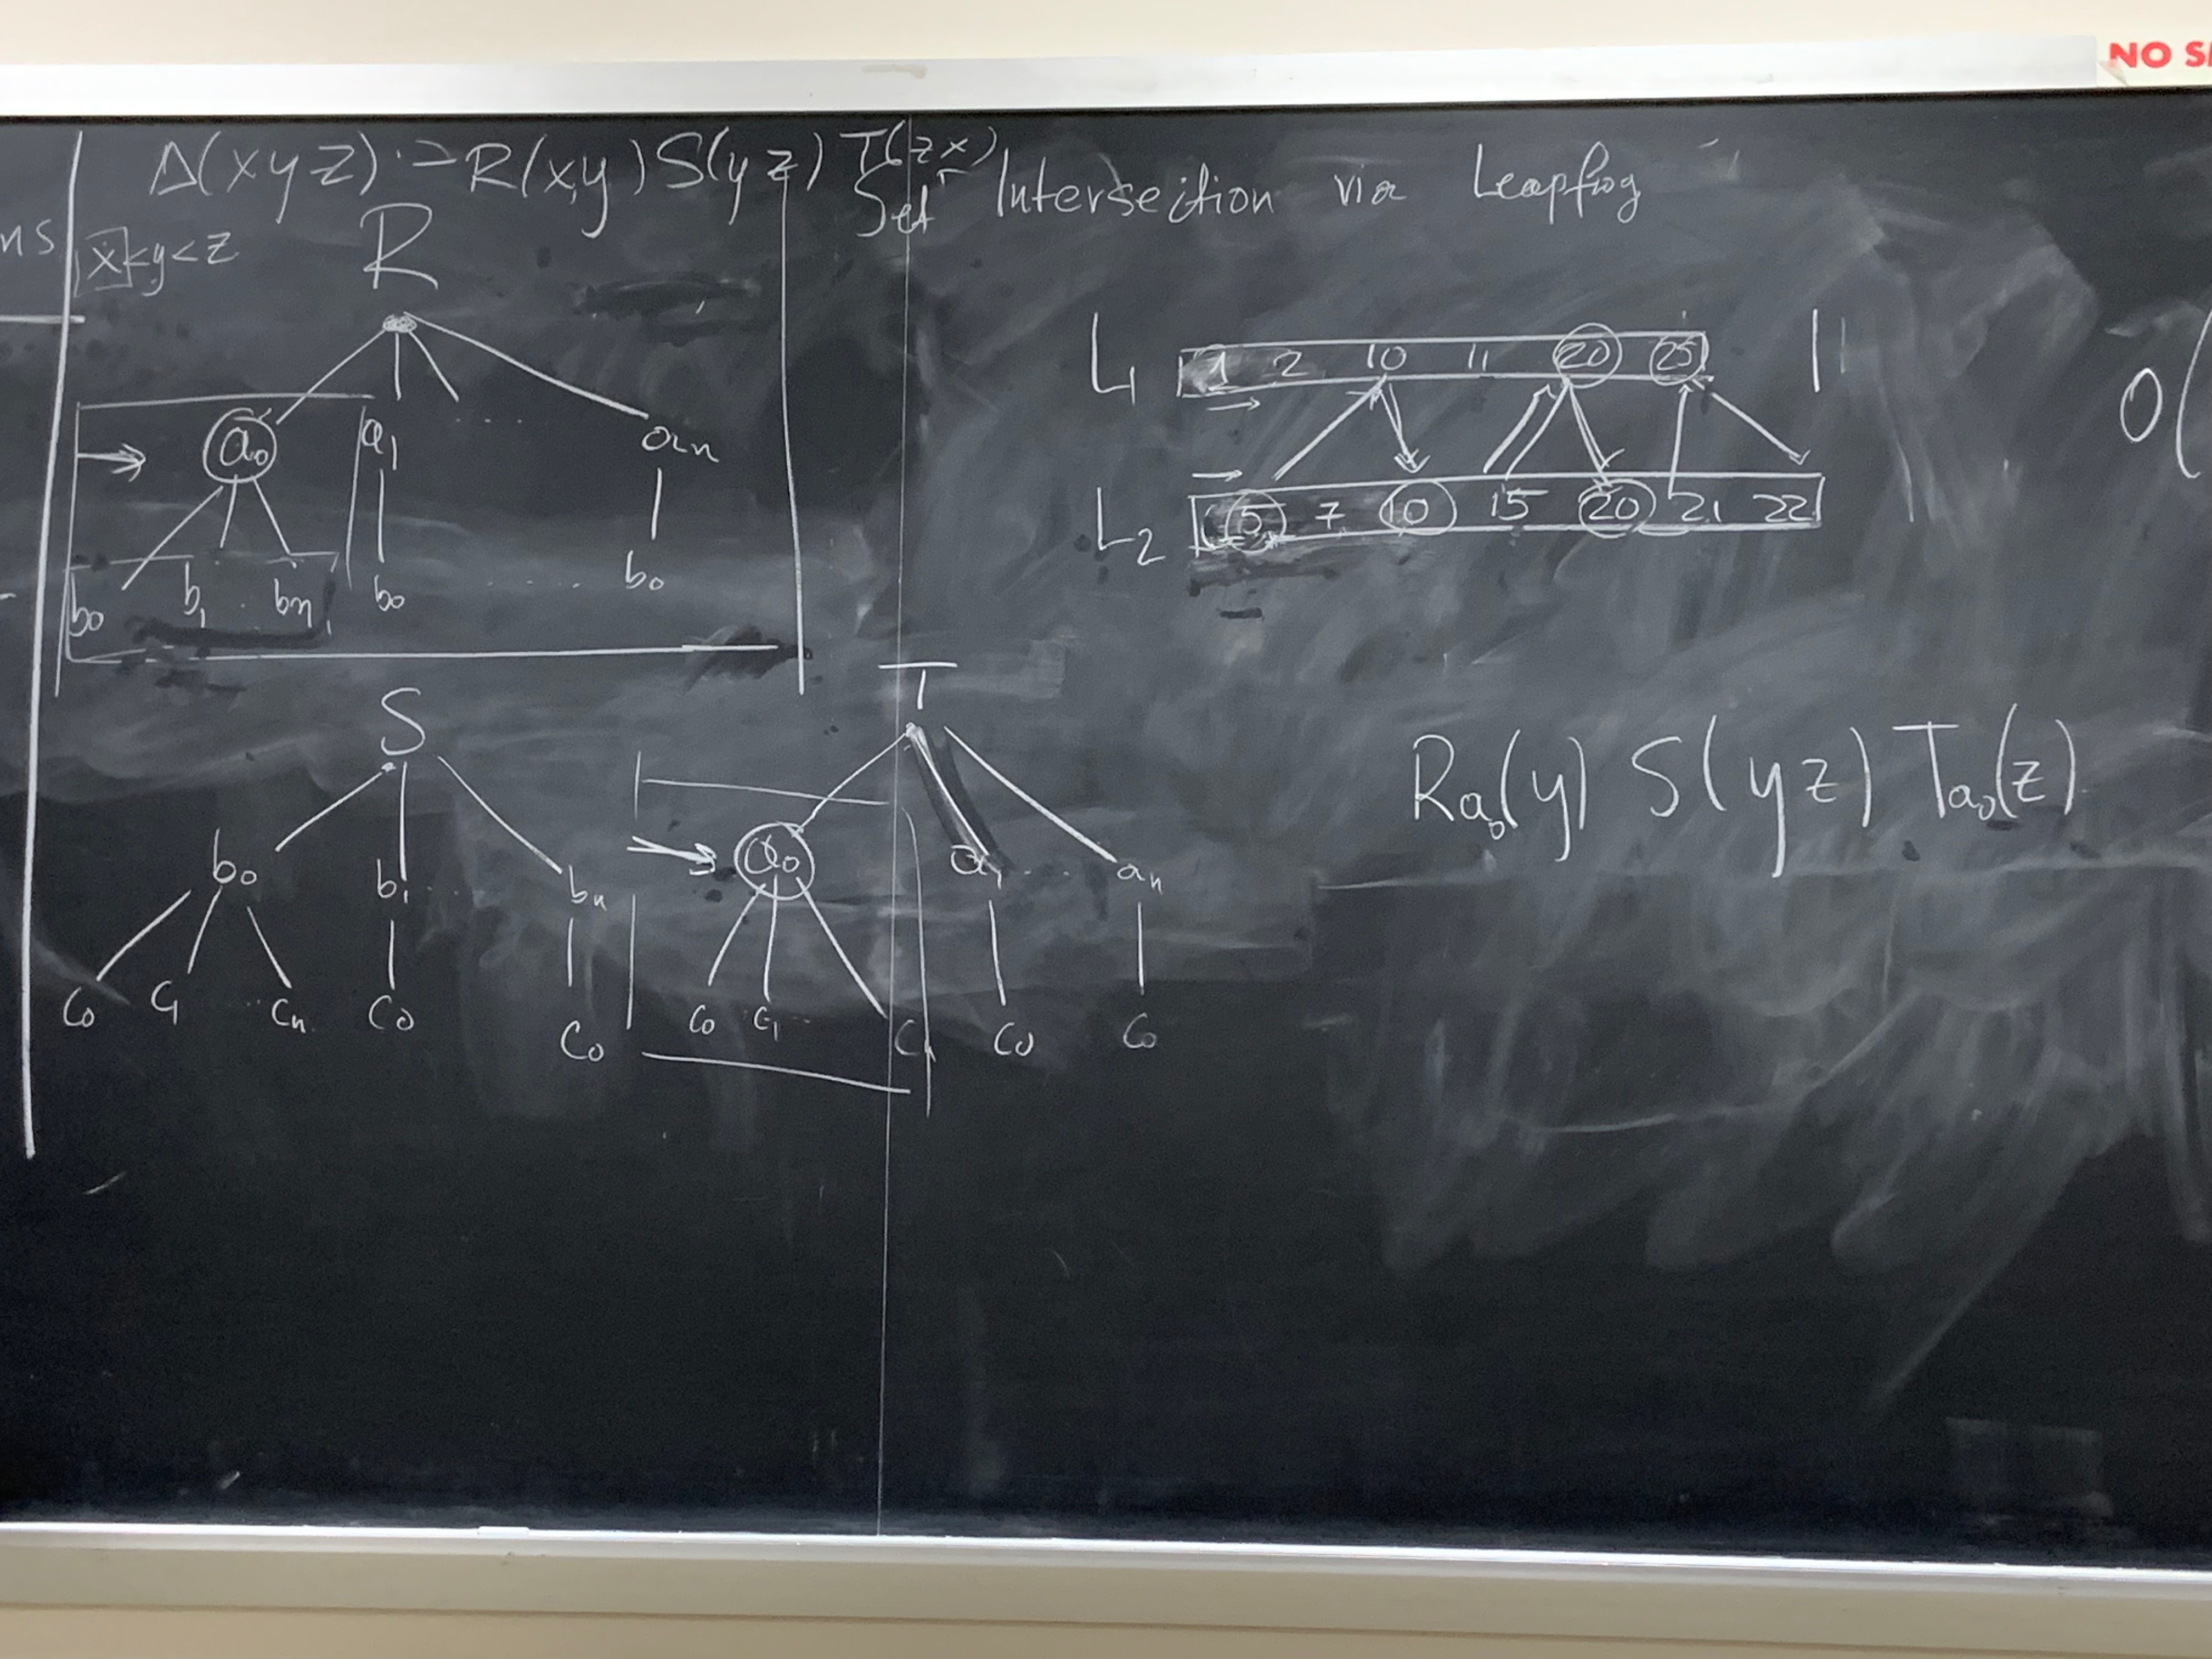 NO S
Δ(xyz) :- R(xy) S(yz) T(zx)
ns
x<y<z
R
a₀ a₁ .... aₙ
b₀ b₁ . bₙ b₀ .... b₀
S
b₀ b₁ ... bₙ
c₀ c₁ .. cₙ c₀ c₀
T
a₀ a₁ .... aₙ
c₀ c₁ .. c c₀ c₀
Set Intersection via Leapfrog
L₁ 1 2 10 11 20 25
L₂ 5 7 10 15 20 21 22
O(
Ra₀(y) S(yz) Ta₀(z)